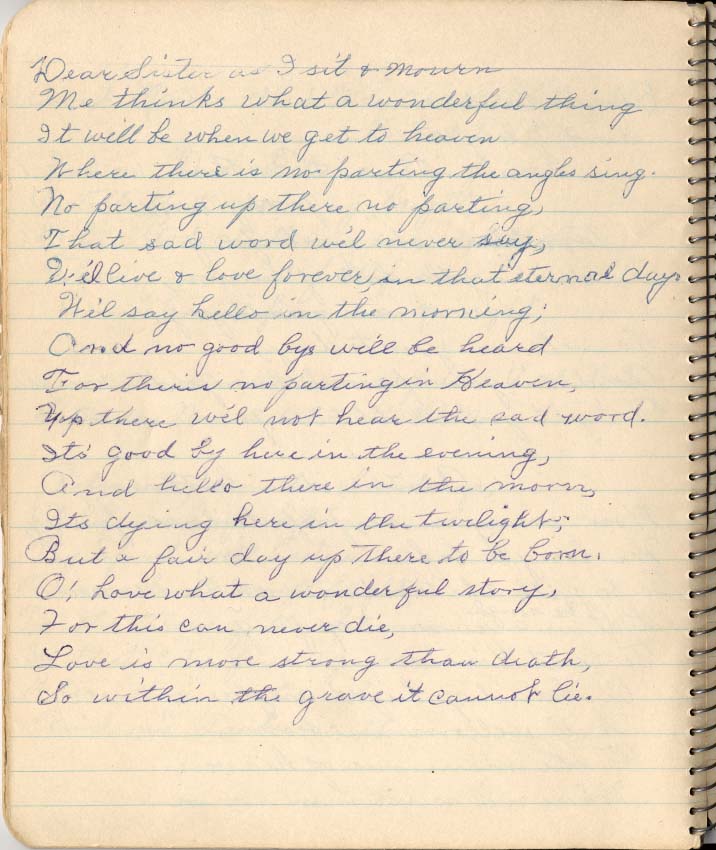 Dear Sister as I sit & mourn
Me thinks what a wonderful thing
It will be when we get to heaven
Where there is no parting the angles sing.
No parting up there no parting,
That sad word we'l never say,
We'l live & love forever, in that eternal day.
We'l say hello in the morning;
And no good bys will be heard
For theris no parting in Heaven,
Up there we'l not hear the sad word.
Its good by here in the evening,
And hello there in the morn,
Its dying here in the twilight;
But a fair day up there to be born.
O! Love what a wonderful story,
For this can never die,
Love is more strong than death,
So within the grave it cannot lie.